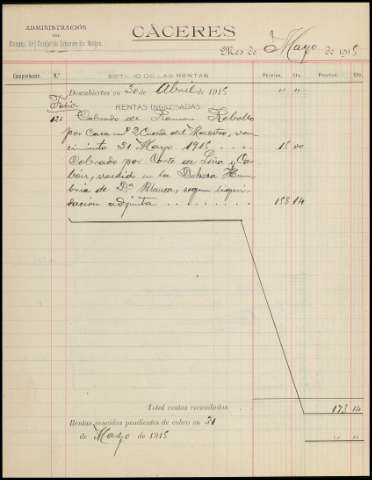 ADMINISTRACIÓN
CÁCERES
Mes de Mayo de 1915
Comprobante. N.º DETALLE DE LAS RENTAS Pesetas. Cts. Pesetas. Cts.
Descubiertos en 30 de Abril de 1915 " "
RENTAS INGRESADAS:
Cobrado de Ramon Rebollo
por Casa nº 2 Cuesta del Maestro, ven-
cimiento 31 Mayo 1915 15 00
Cobrado por Corte de Leña y Car-
bon, vendido en la Dehesa Hum-
bria de Dª Blanca, segun liqui-
dación adjunta 158 14
Total rentas recaudadas 173 14
Rentas vencidas pendientes de cobro en 31
de Mayo de 1915 " "